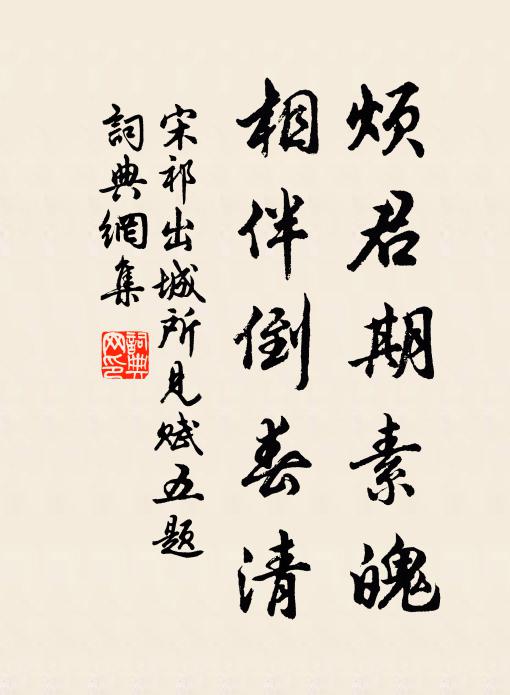 煩君期素魄
相伴倒春清
宋祁出城所見賦五題
詞典網集
詞典網印